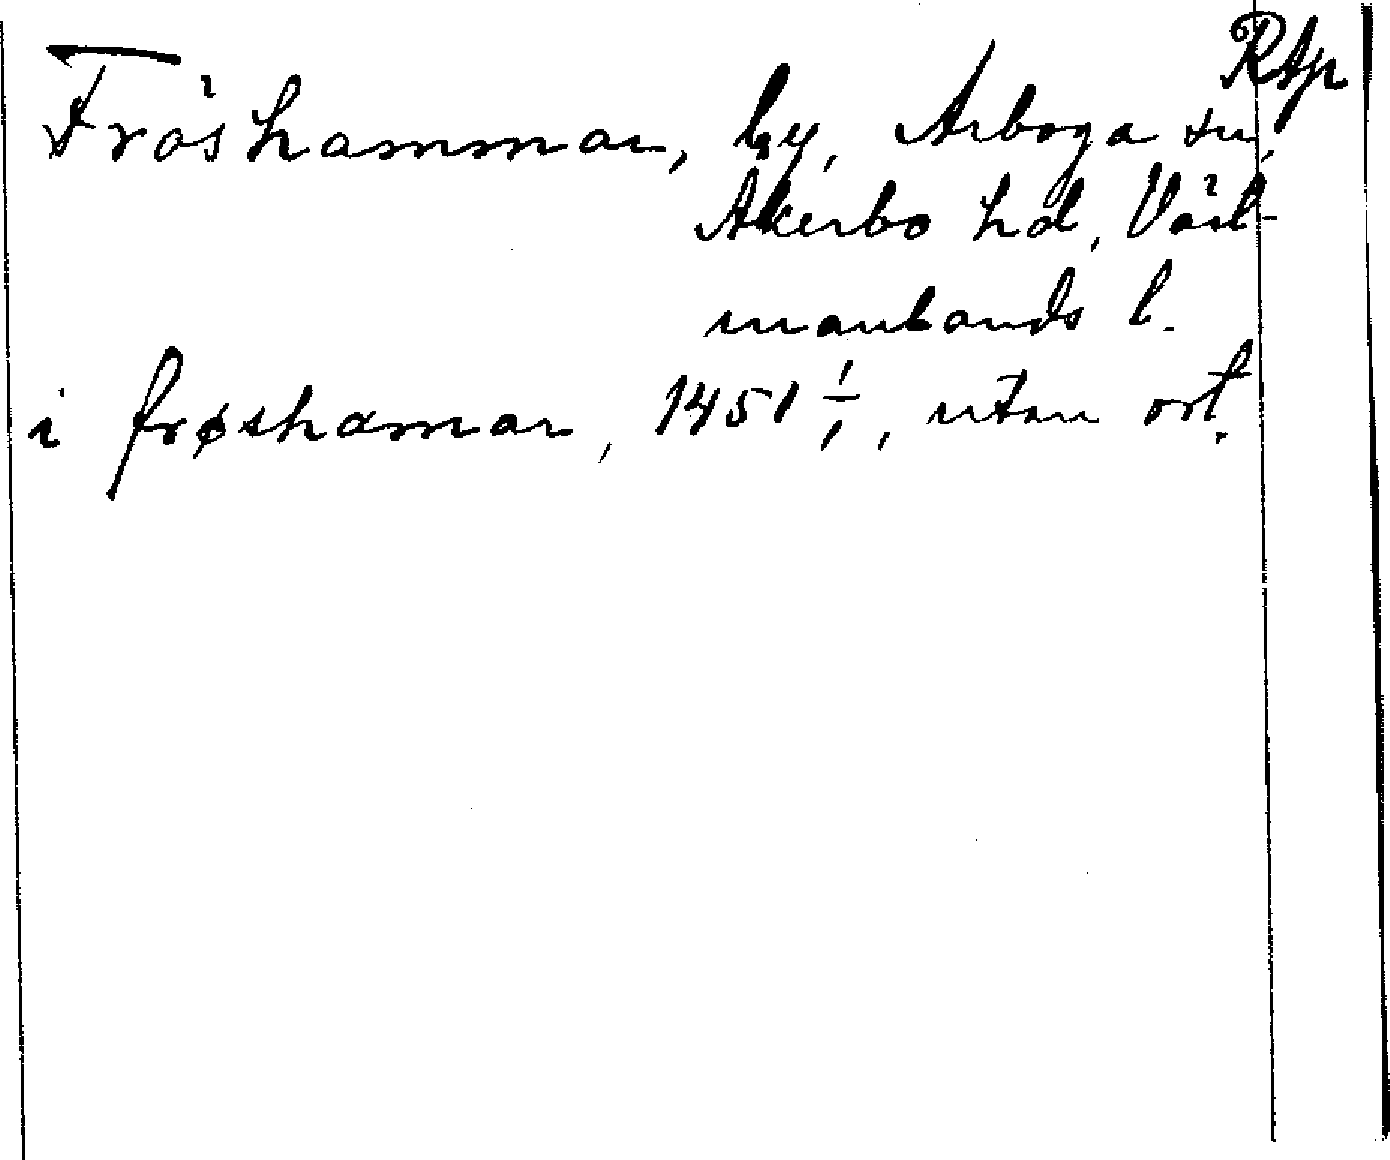 Rtp
Fröshammar, by, Arboga sn,
Åkerbo hd, Väst-
manlands l.
i frøshamar, 1451 1/1, utan ort.